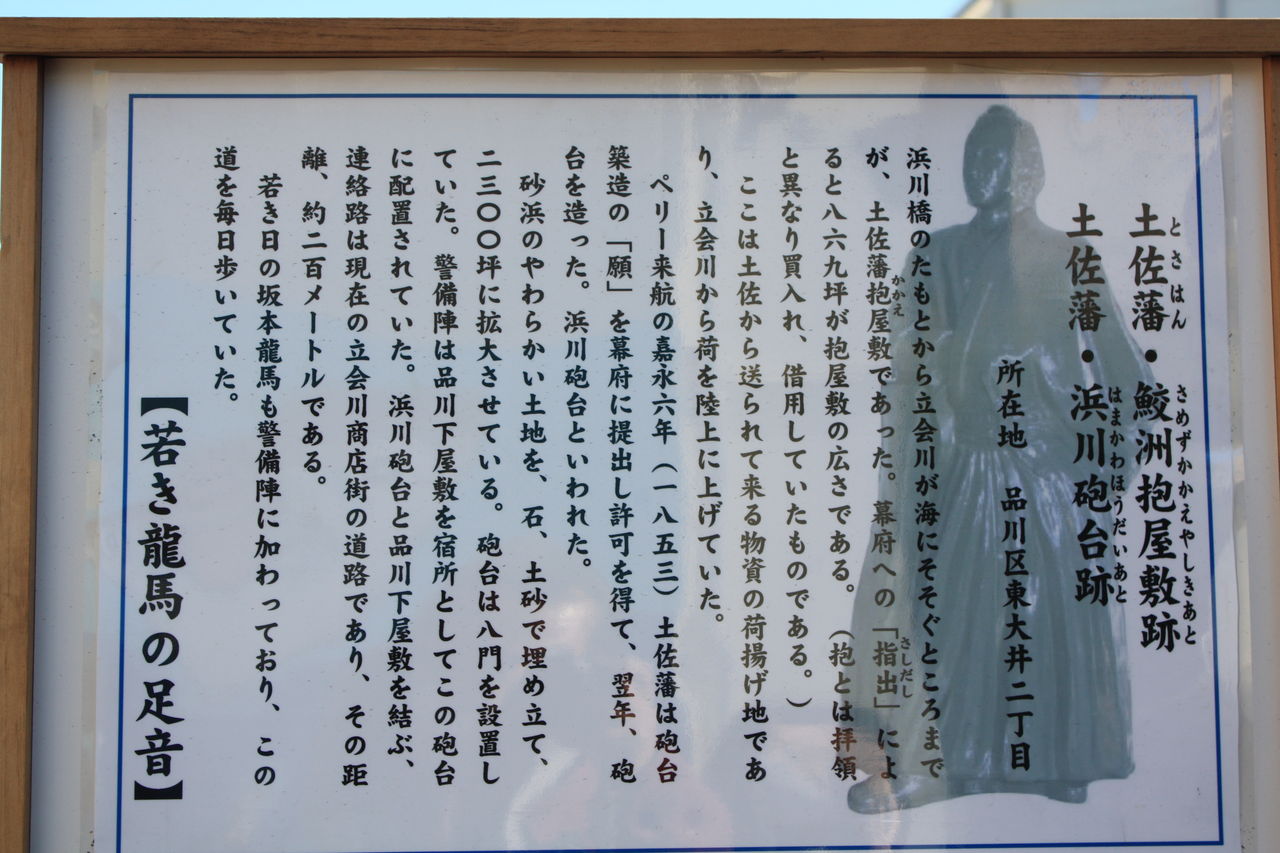 土佐藩・鮫洲抱屋敷跡
とさはん さめずかかえやしきあと
土佐藩・浜川砲台跡
はまかわほうだいあと
所在地 品川区東大井二丁目
浜川橋のたもとから立会川が海にそそぐところまで
が、土佐藩抱屋敷であった。幕府への「指出」によ
かかえ
さしだし
ると八六九坪が抱屋敷の広さである。(抱とは拝領
と異なり買入れ、借用していたものである。)
ここは土佐から送られて来る物資の荷揚げ地であ
り、立会川から荷を陸上に上げていた。
ペリー来航の嘉永六年(一八五三)土佐藩は砲台
築造の「願」を幕府に提出し許可を得て、翌年、砲
台を造った。浜川砲台といわれた。
砂浜のやわらかい土地を、石、土砂で埋め立て、
二三〇〇坪に拡大させている。砲台は八門を設置し
ていた。警備陣は品川下屋敷を宿所としてこの砲台
に配置されていた。浜川砲台と品川下屋敷を結ぶ、
連絡路は現在の立会川商店街の道路であり、その距
離、約二百メートルである。
若き日の坂本龍馬も警備陣に加わっており、この
道を毎日歩いていた。
【若き龍馬の足音】